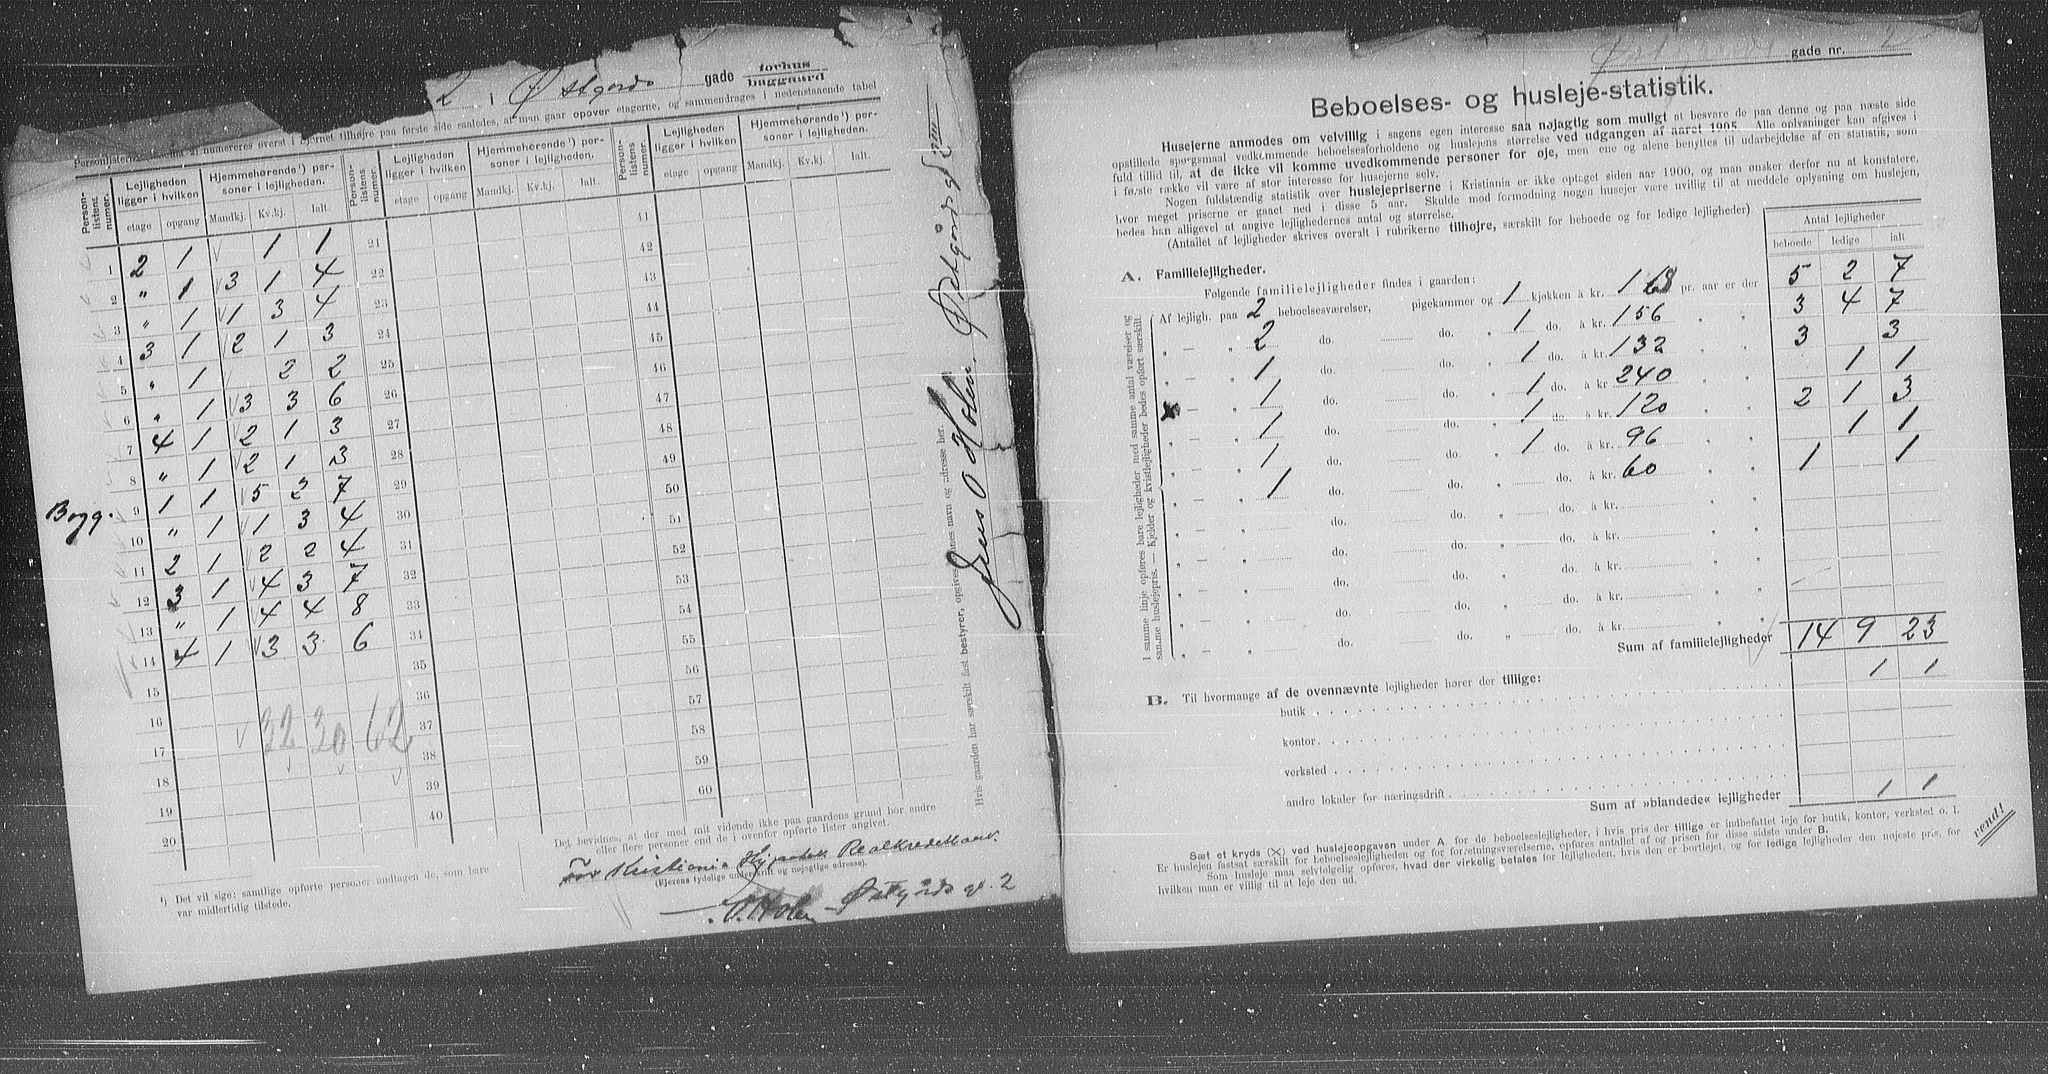 2 i Østgords gade forhus baggaard
Personlisterne
numereres øverst i hjørnet tilhøjre paa første side saaledes, at man gaar opover etagerne, og sammendrages i nedenstaaende tabel
Person-listens nummer. | Lejligheden ligger i hvilken etage | opgang | Hjemmehørende¹) personer i lejligheden. Mandkj. | Kv.kj. | Ialt.
1 2 1 1 1
2 „ 1 3 1 4
3 „ 1 1 3 4
4 3 1 2 1 3
5 „ 1 2 2
6 „ 1 3 3 6
7 4 1 2 1 3
8 „ 1 2 1 3
Bagg. 9 1 1 5 2 7
10 „ 1 1 3 4
11 2 1 2 2 4
12 3 1 4 3 7
13 „ 1 4 4 8
14 4 1 3 3 6
15
16
17 32 30 62
18
19
20
Person-listens nummer. | Lejligheden ligger i hvilken etage | opgang | Hjemmehørende¹) personer i lejligheden. Mandkj. | Kv.kj. | Ialt.
21
22
23
24
25
26
27
28
29
30
31
32
33
34
35
36
37
38
39
40
Person-listens nummer. | Lejligheden ligger i hvilken etage | opgang | Hjemmehørende¹) personer i lejligheden. Mandkj. | Kv.kj. | Ialt.
41
42
43
44
45
46
47
48
49
50
51
52
53
54
55
56
57
58
59
60
¹) Det vil sige: samtlige opførte personer undtagen de, som bare
var midlertidig tilstede.
Det bevidnes, at der med mit vidende ikke paa gaardens grund bor andre
eller flere personer end de i ovenfor opførte lister angivet.
For Kristiania Hypothek Realkreditbank.
(Ejerens tydelige underskrift og nøjagtige adresse).
O. Holen Østgårds gt. 2
Hvis gaarden har særskilt fast bestyrer, opgives hans navn og adresse her.
Jens O Holen. Østgårds gt 2
gade nr. 2
Beboelses- og husleje-statistik.
Husejerne anmodes om velvillig i sagens egen interesse saa nøjagtig som muligt at besvare de paa denne og paa næste side
opstillede spørgsmaal vedkommende beboelsesforholdene og huslejens størrelse ved udgangen af aaret 1905. Alle oplysninger kan afgives i
fuld tillid til, at de ikke vil komme uvedkommende personer for øje, men ene og alene benyttes til udarbejdelse af en statistik, som
i første række vil være af stor interesse for husejerne selv.
Nogen fuldstændig statistik over huslejepriserne i Kristiania er ikke optaget siden aar 1900, og man ønsker derfor nu at konstatere,
hvor meget priserne er gaaet ned i disse 5 aar. Skulde mod formodning nogen husejer være uvillig til at meddele oplysning om huslejen,
bedes han alligevel at angive lejlighedernes antal og størrelse.
(Antallet af lejligheder skrives overalt i rubrikerne tilhøjre, særskilt for beboede og for ledige lejligheder)
Antal lejligheder
beboede | ledige | ialt
A. Familielejligheder.
Følgende familielejligheder findes i gaarden:
Af lejligh. paa 2 beboelsesværelser, pigekammer og 1 kjøkken à kr. 168 pr. aar er der 5 2 7
„ — „ 2 do. „ 1 do. à kr. 156 „ „ 3 4 7
„ — „ 1 do. „ 1 do. à kr. 132 „ „ 3 3
„ — „ 1 do. „ 1 do. à kr 240 „ „ 1 1
„ — „ 1 do. „ 1 do. à kr. 120 „ „ 2 1 3
„ — „ 1 do. „ 1 do. à kr. 96 „ „ 1 1
„ — „ 1 do. „ do. à kr. 60 „ „ 1 1
„ — „ do. „ do. à kr.
„ — „ do. „ do. à kr.
„ — „ do. „ do. à kr.
„ — „ do. „ do. à kr.
„ — „ do. „ do. à kr.
I samme linje opføres bare lejligheder med samme antal værelser og
samme huslejepris. — Kjelder og kvistlejligheder bedes opført særskilt.
Sum af familielejligheder 14 9 23
B. Til hvormange af de ovennævnte lejligheder hører der tillige:
butik 1 1
kontor
verksted
andre lokaler for næringsdrift
Sum af »blandede« lejligheder 1 1
Sæt et kryds (×) ved huslejeopgaven under A for de beboelseslejligheder, i hvis pris der tillige er indbefattet leje for butik, kontor, verksted o. l.
Er huslejen fastsat særskilt for beboelseslejligheden og for forretningsværelserne, opføres antallet af og prisen for disse sidste under B.
Som husleje maa selvfølgelig opføres, hvad der virkelig betales for lejligheden, hvis den er bortlejet, og for ledige lejligheder den nøjeste pris, for
hvilken man er villig til at leje den ud.
vend!